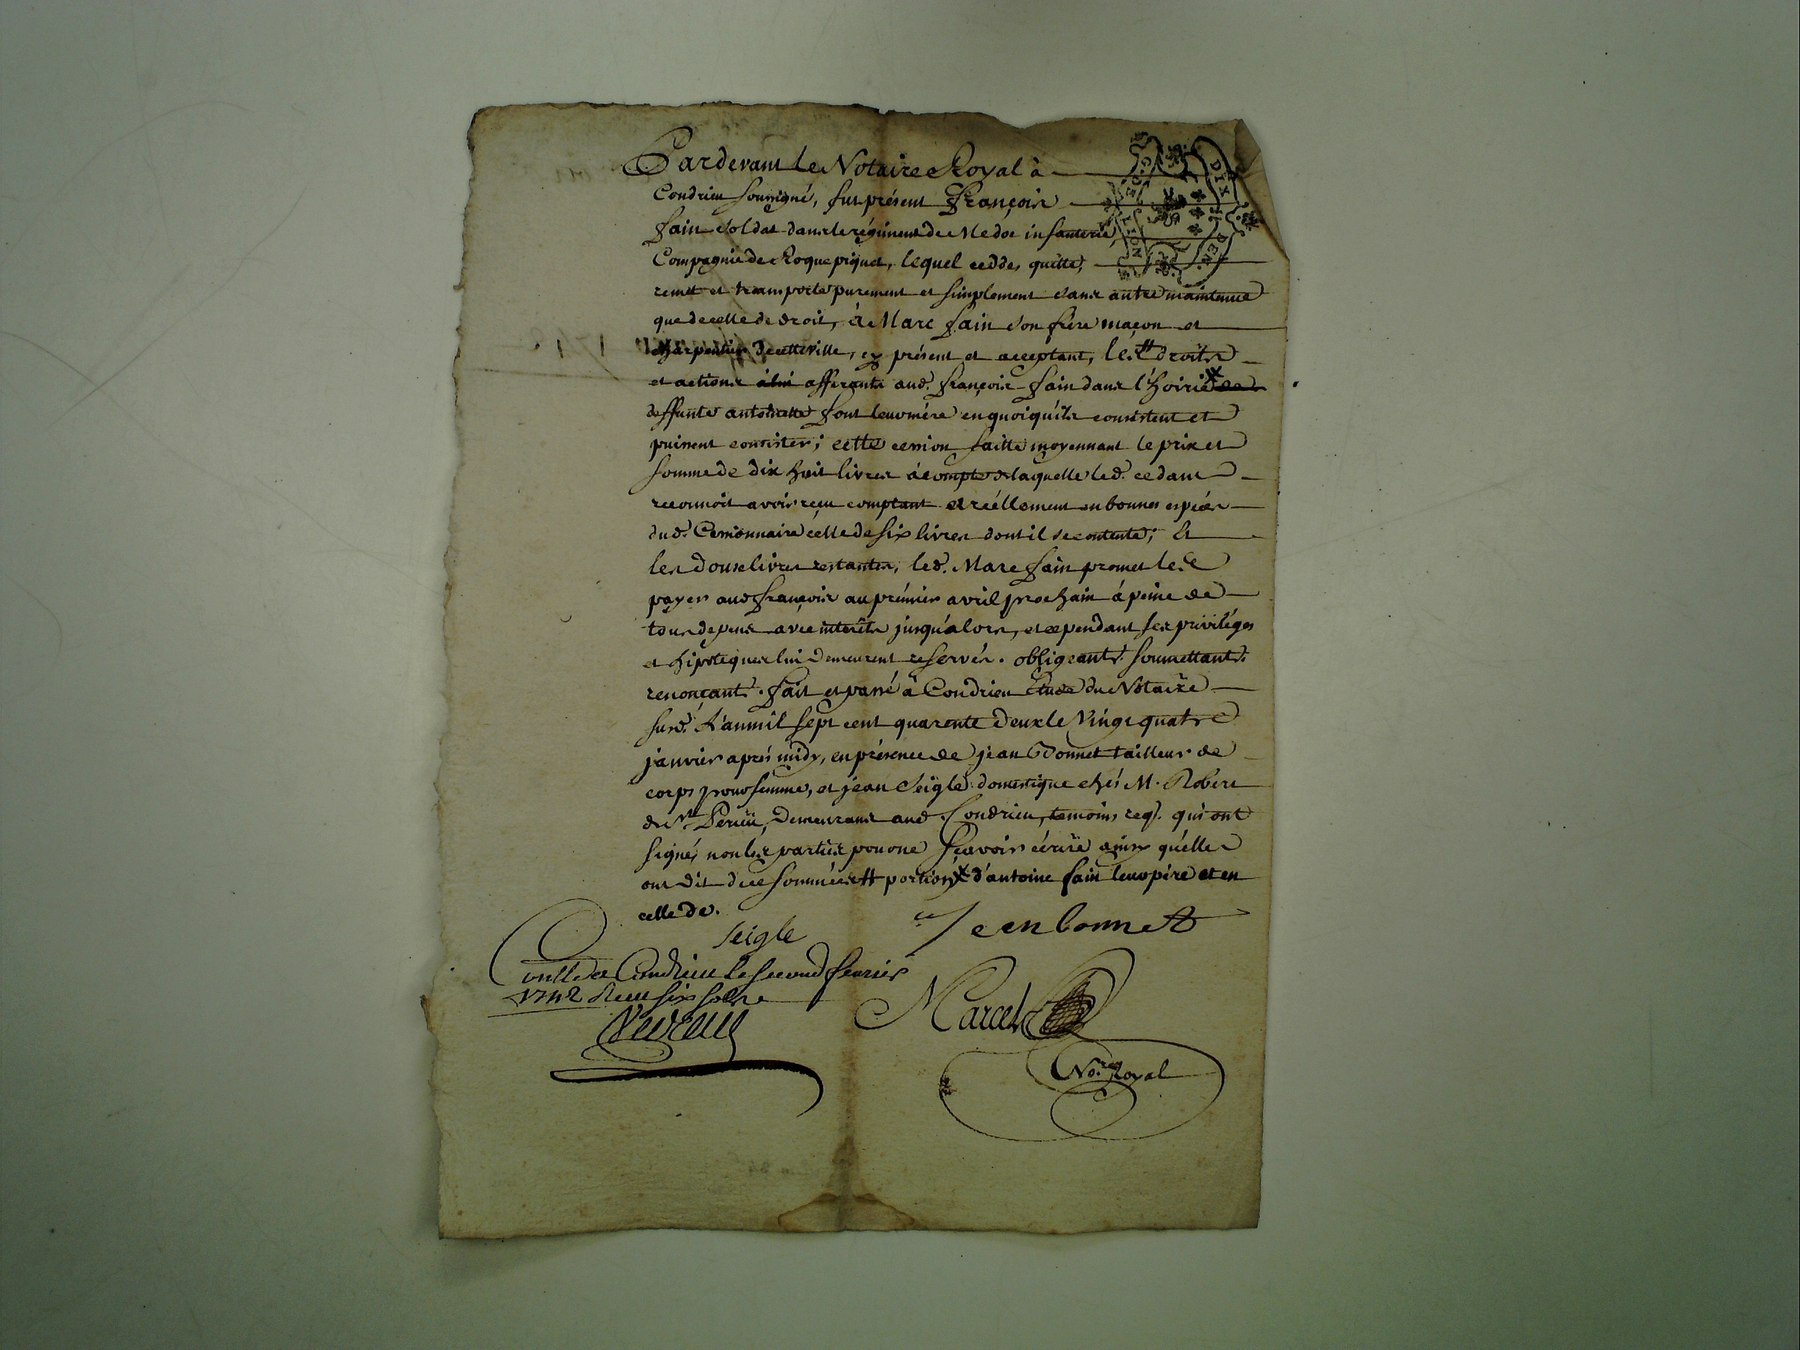 Pardevant Le Notaire Royal à
Condrieu soussigné, fut présent François
fain soldat dans le régiment de Medoc infanterie,
Compagnie de Roquepiquet, lequel cedde, quitte,
remet et transporte purement et simplement sans autre maintenue
que de celle de droit, à Marc fain son frère maçon et
charpentier de cette ville, cy présent et acceptant, les # droits
et actions à lui afferants aud. françois fain dans l'hoirie * de
deffunte antoinette font leur mére en quoi qu'ils consistent et
puissent consister; cette cession faitte moyennant le prix et
somme de dix huit livres à compte de laquelle led. cedant
reconnoit avoir reçu comptant et réellement en bonnes espéces
dud. Cessionnaire celle de six livres dont il se contente; Et
les douse livres restantes, led. Marc fain promet les
payer aud. françois au prémier avril prochain à peine de
tous depens avec interêts jusqu'alors, et cependant ses priviléges
et hipoteques lui demeurent reservés. obligeants. soumettants.
renonçants. fait et passé à Condrieu étude du Notaire
susd. L'an mil sept cent quarente deux le vingt quatre
janvier aprés midy, en présence de jean Bonnet tailleur de
corps pour femme, et jean Seigle domestique chés M. Robert
du, demeurants aud. Condrieu, temoins req. qui ont
signé, non les parties pour ne sçavoir écrire ainsy qu'elles
ont dit de ce sommées # portion * d'antoine fain leur pére et en
celle de.
Seigle
Jeen bonnet
Condrieu le second fevrier
1742 Reçu six sols
Marcel
No.re Royal
DIX DEN